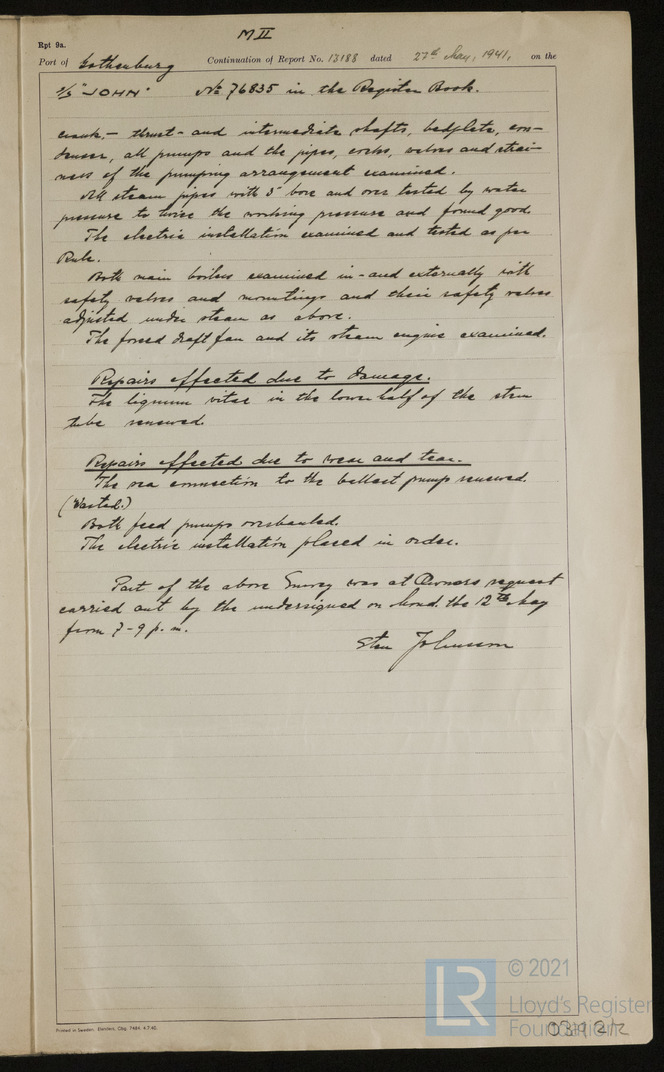 M II
Rpt 9a.
Port of Gothenburg Continuation of Report No. 13188 dated 27th May, 1941, on the
S/S "JOHN" No 76835 in the Register Book.
crank,- thrust- and intermediate shafts, bedplate, con-
denser, all pumps and the pipes, cocks, valves and strai-
ners of the pumping arrangement examined.
All steam pipes with 3" bore and over tested by water
pressure to twice the working pressure and found good.
The electric installation examined and tested as per
Rule.
Both main boilers examined in- and externally with
safety valves and mountings and their safety valves
adjusted under steam as above.
The forced draft fan and its steam engine examined.
Repairs effected due to damage.
The lignum vitae in the lower half of the stern
tube renewed.
Repairs effected due to wear and tear.
The sea connection to the ballast pump renewed.
(Wasted.)
Both feed pumps overhauled.
The electric installation placed in order.
Part of the above Survey was at Owners request
carried out by the undersigned on board the 12th May
from 7-9 p.m.
Sten Johnsson
Printed in Sweden. Elanders, Gbg. 7484 4.7.40.
LR
© 2021
Lloyd's Register
Foundation